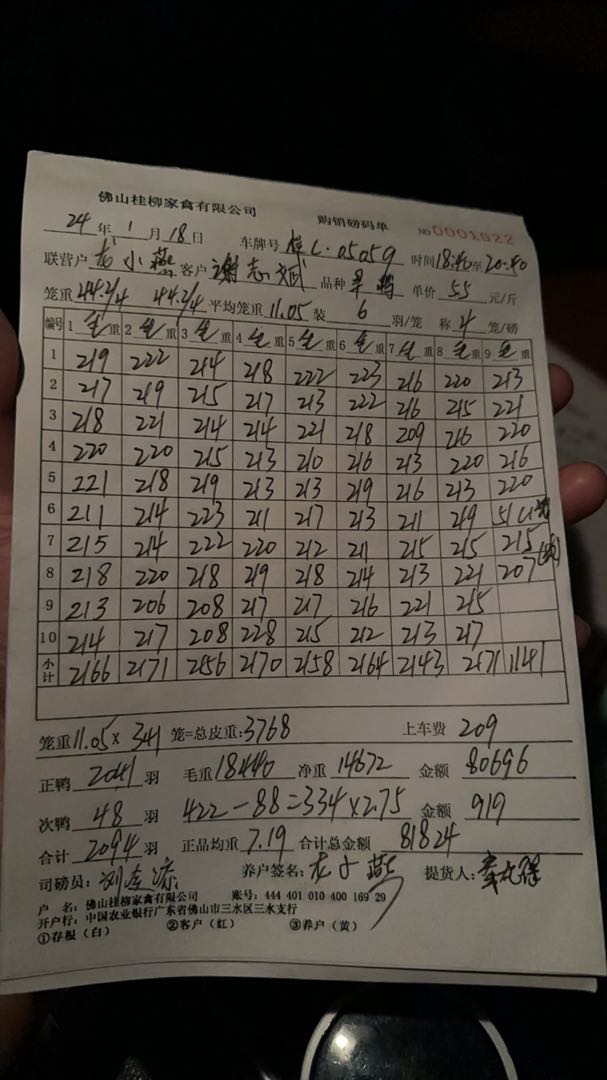 佛山桂柳家禽有限公司 购销磅码单 NO 0001622
24 年 1 月 18 日 车牌号 05059 时间 18:40至20:40
联营户 龙小燕 客户 谢志斌 品种 单价 5.5 元/斤
笼重 44.2/4 44.2/4 平均笼重 11.05 装 6 羽/笼 称 4 笼/磅
编号 1 毛重 2 毛重 3 毛重 4 毛重 5 毛重 6 毛重 7 毛重 8 毛重 9 毛重
1 219 222 214 218 222 223 216 220 213
2 217 219 215 217 213 222 216 215 221
3 218 221 214 214 221 218 209 216 220
4 220 220 215 213 210 216 213 220 216
5 221 218 219 213 213 219 216 213 220
6 211 214 223 211 217 213 211 219 51
7 215 214 222 220 212 211 215 215 215
8 218 220 218 219 218 214 213 221 207
9 213 206 208 217 217 216 221 215
10 214 217 208 228 215 212 213 217
小计 2166 2171 2156 2170 2158 2164 2143 2171 1141
笼重 11.05 × 341 笼=总皮重: 3768 上车费 209
正鸭 2041 羽 毛重 18440 净重 14672 金额 80696
次鸭 48 羽 422-88=334×2.75 金额 919
合计 2094 羽 正品均重 7.19 合计总金额 81824
司磅员: 养户签名: 龙小燕 提货人:
户 名: 佛山桂柳家禽有限公司 账号: 444 401 010 400 169 29
开户行: 中国农业银行广东省佛山市三水区三水支行
①存根(白) ②客户(红) ③养户(黄)